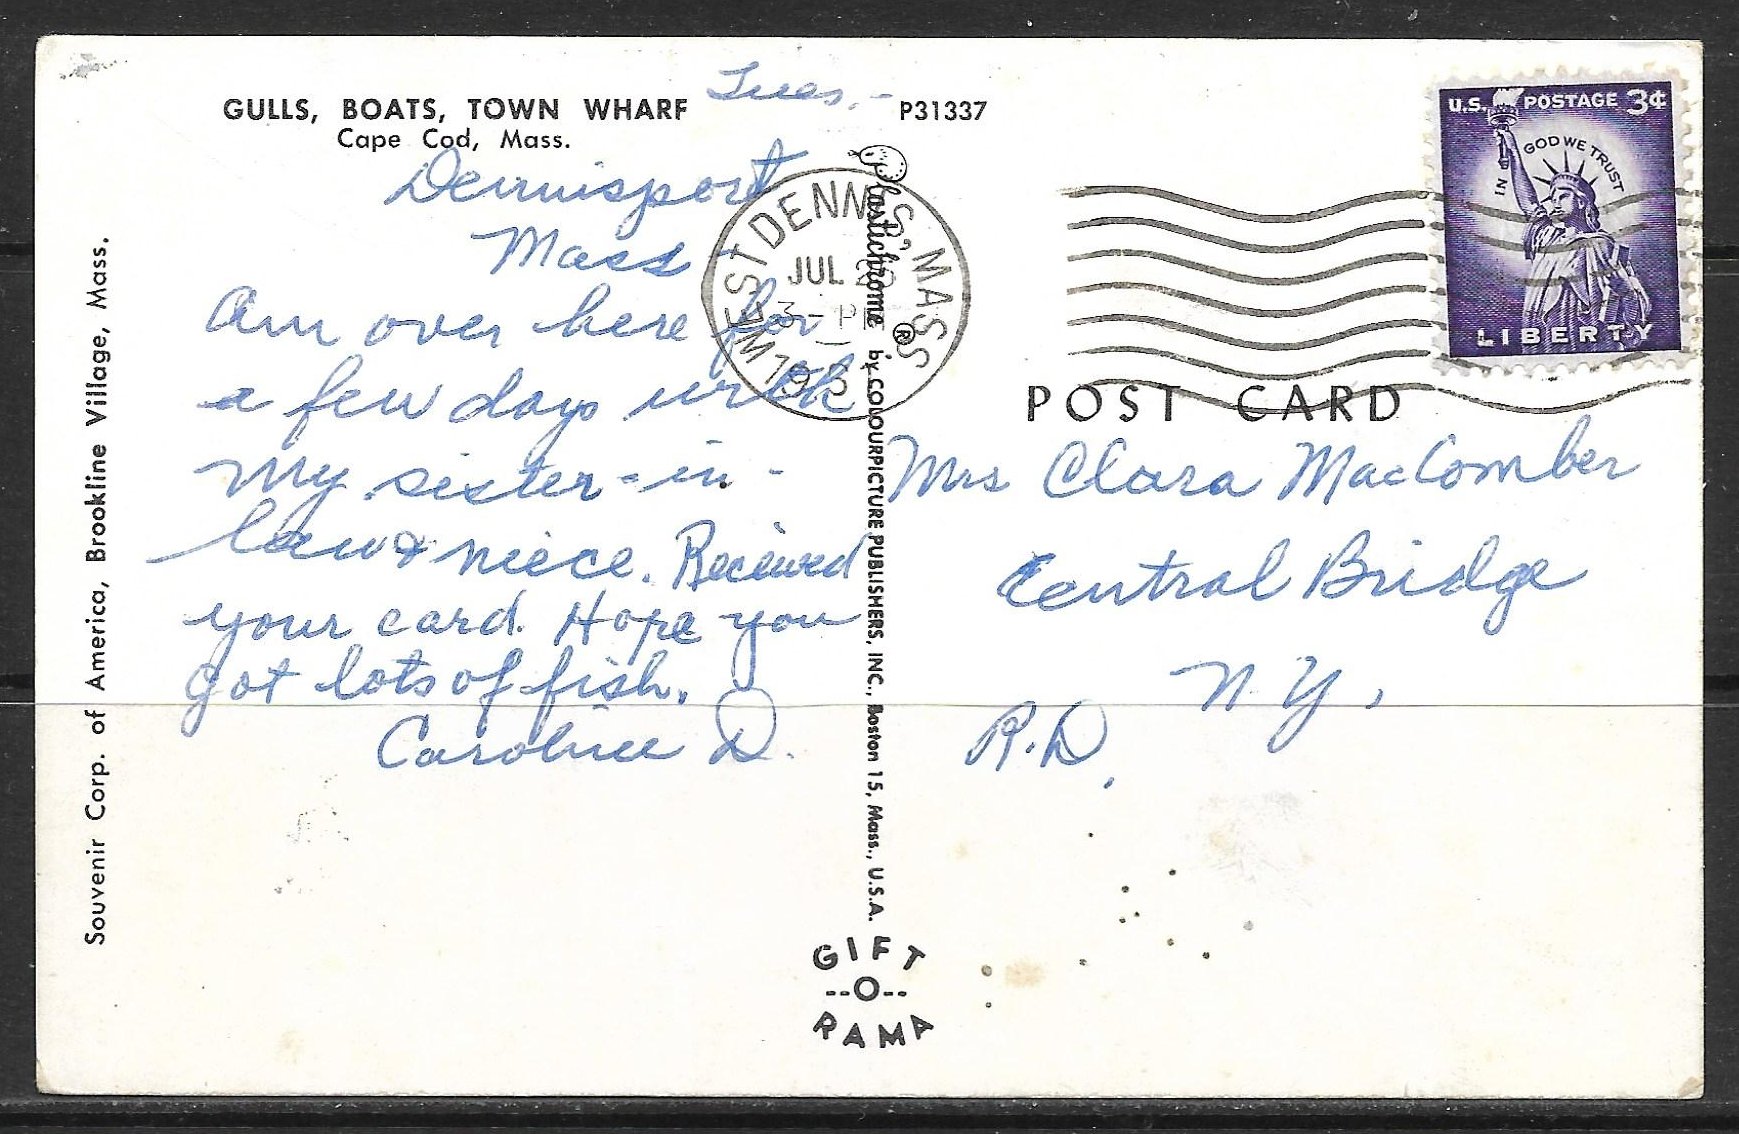 GULLS, BOATS, TOWN WHARF
Cape Cod, Mass.
P31337
Tues. -
Dennisport
Mass
Am over here for
a few days with
my sister-in-
law & niece. Received
your card. Hope you
got lots of fish.
Caroline D.
Souvenir Corp. of America, Brookline Village, Mass.
WEST DENNIS, MASS
JUL
3 - P
Plastichrome ® by COLOURPICTURE PUBLISHERS, INC., Boston 15, Mass., U.S.A.
GIFT
--O--
RAMA
U.S. POSTAGE 3¢
IN GOD WE TRUST
LIBERTY
POST CARD
Mrs Clara MacComber
Central Bridge
N. Y.,
R.D.